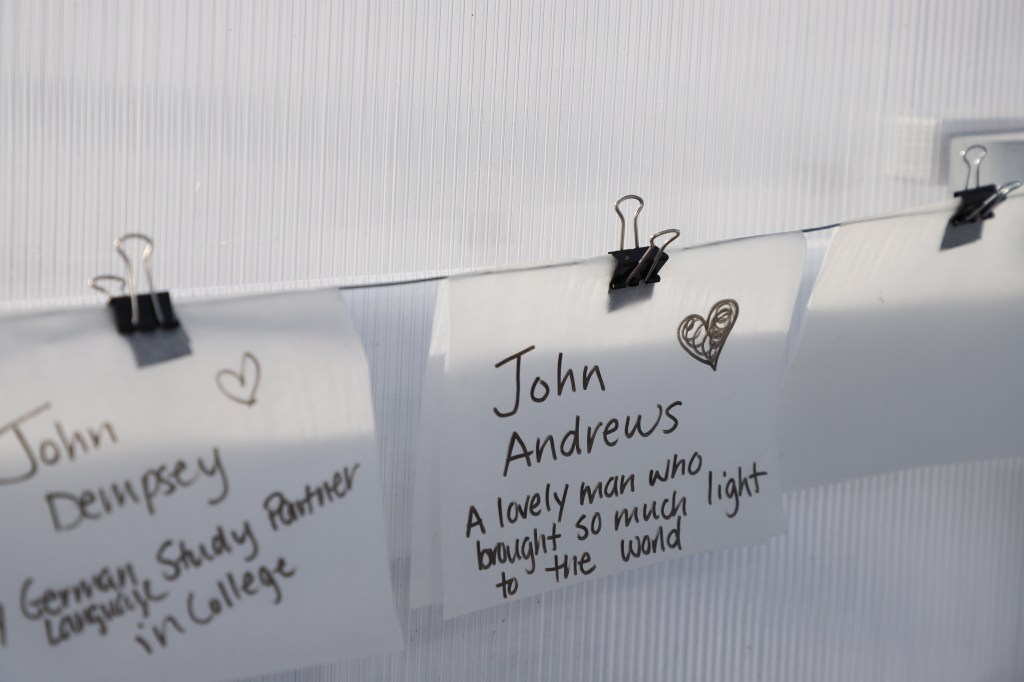 John
Dempsey
German Study Partner
Language
in College
John
Andrews
A lovely man who
brought so much light
to the world